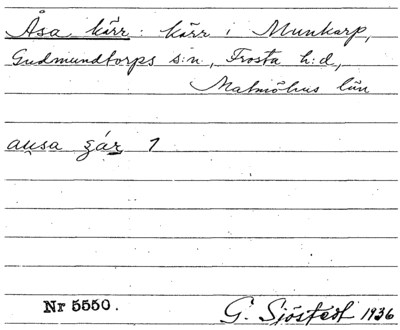 Åsa kärr: kärr i Munkarp,
Gudmundtorps s:n, Frosta h:d,
Malmöhus län
ausa 1
Nr 5550.
G. Sjöstedt 1936